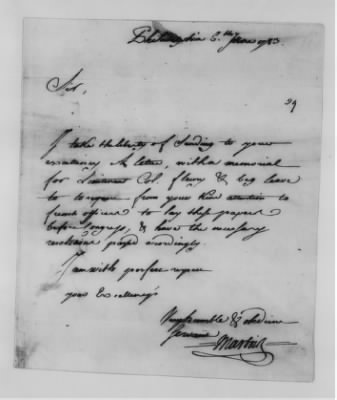 Philadelphia 6.th June 1783
Sir,
29
I take the liberty of sending to your
excellency A letter, with a memorial
for Lieutenant Col. fleury & beg leave
to require from your kind attention to
french officers to lay those papers
before Congress, & have the necessary
passed accordingly.
I am with perfect respect
your Excellency's
Very humble & obedient
Servant